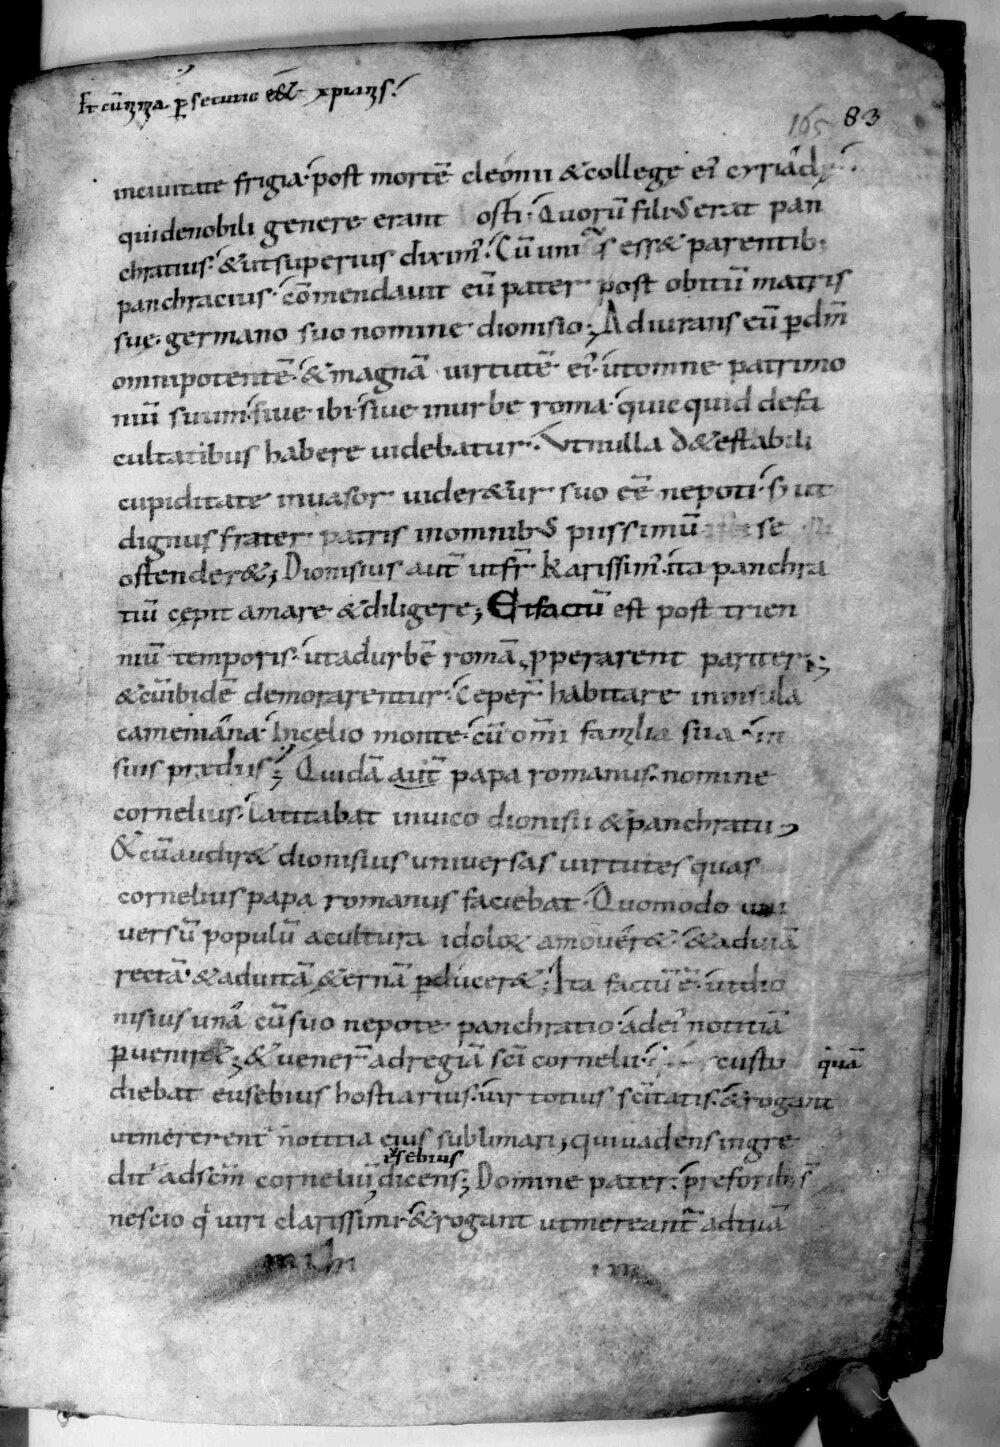 Et cū mᷓ ꝑsecutio e&
165 83
inciuitate frigia· post mortē cleonii &college ei᾽ cyriad
qui denobili genere erant osti· Quorū filiꝰ erat pan
chratius· &ut superius dixim᾽· Cū unicꝰ ess& parentib;
panchracius· cōmendauit eū pater post obitū matris
suę· germano suo nomine dionisio; Adiurans eū ꝑ dm̄
omnipotentē· &magnā uirtutē ei᾽· ut omne patrimo
niū suum· siue ibi· siue inurbe roma· quicquid defa
cultatibus habere uidebatur· Ut nulla d&estabili
cupiditate inuasor uider&ur suo eē nepoti· s; ut
dignus frater patris inomnibꝰ piissimū se
ostender&; Dionisius aut̄ ut fr̄ karissim᾽· ita panchra
tiū cępit amare &diligere; Et factū est post trien
niū temporis· ut adurbē romā, ꝓperarent pariter;
&cū ibidē demorarentur· Ceper̄ habitare in insula
cameniana· Incelio monte· cū om̄i familia sua· in
suis prædiis; Quidā aut̄ papa romanus· nomine
cornelius· Latitabat inuico dionisii &panchratii,
&cū audir& dionisius uniuersas uirtutes quas
cornelius papa romanus faciebat· Quomodo uni
uersū populū acultura idoloꝝ amouer&· &aduiā
rectā &aduitā &ernā ꝑducer&; Ita factū ē· ut dio
nisius unā cū suo nepote panchratio· adei᾽ notitiā
ꝑuenir&; &uener̄ adregiā sc̄i cornelii· custo quā
diebat eusebius hostiarius· uir totius sc̄itatis· &rogant
ut mererent᾽ notitia eius sublimari, qui uadens ingre
eusebius
dit᾽ ad sc̄m corneliū, dicens; Domine pater· pre foribus
nescio q᾽ uiri clarissimi· &rogant ut mereant᾽ ad tuā